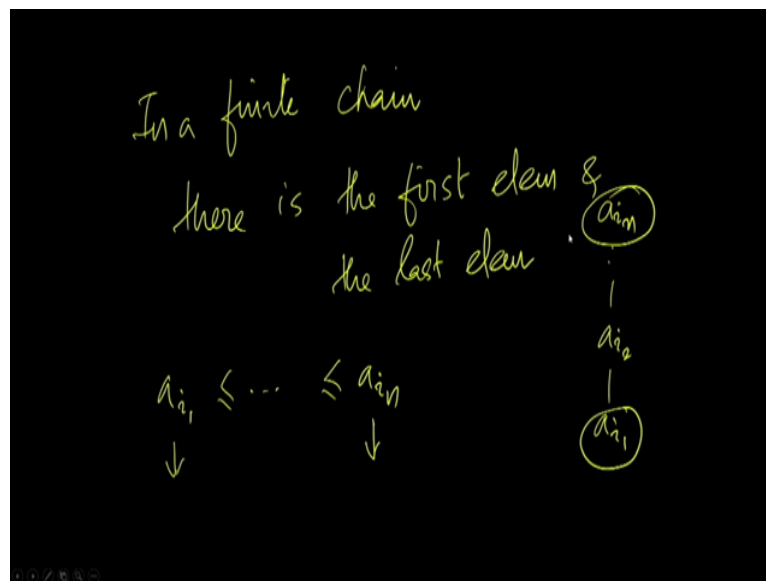 In a finite chain
there is the first elem &
the last elem.
a_{i_n}
a_{i_2}
a_{i_1}
a_{i_1} ≤ ... ≤ a_{i_n}